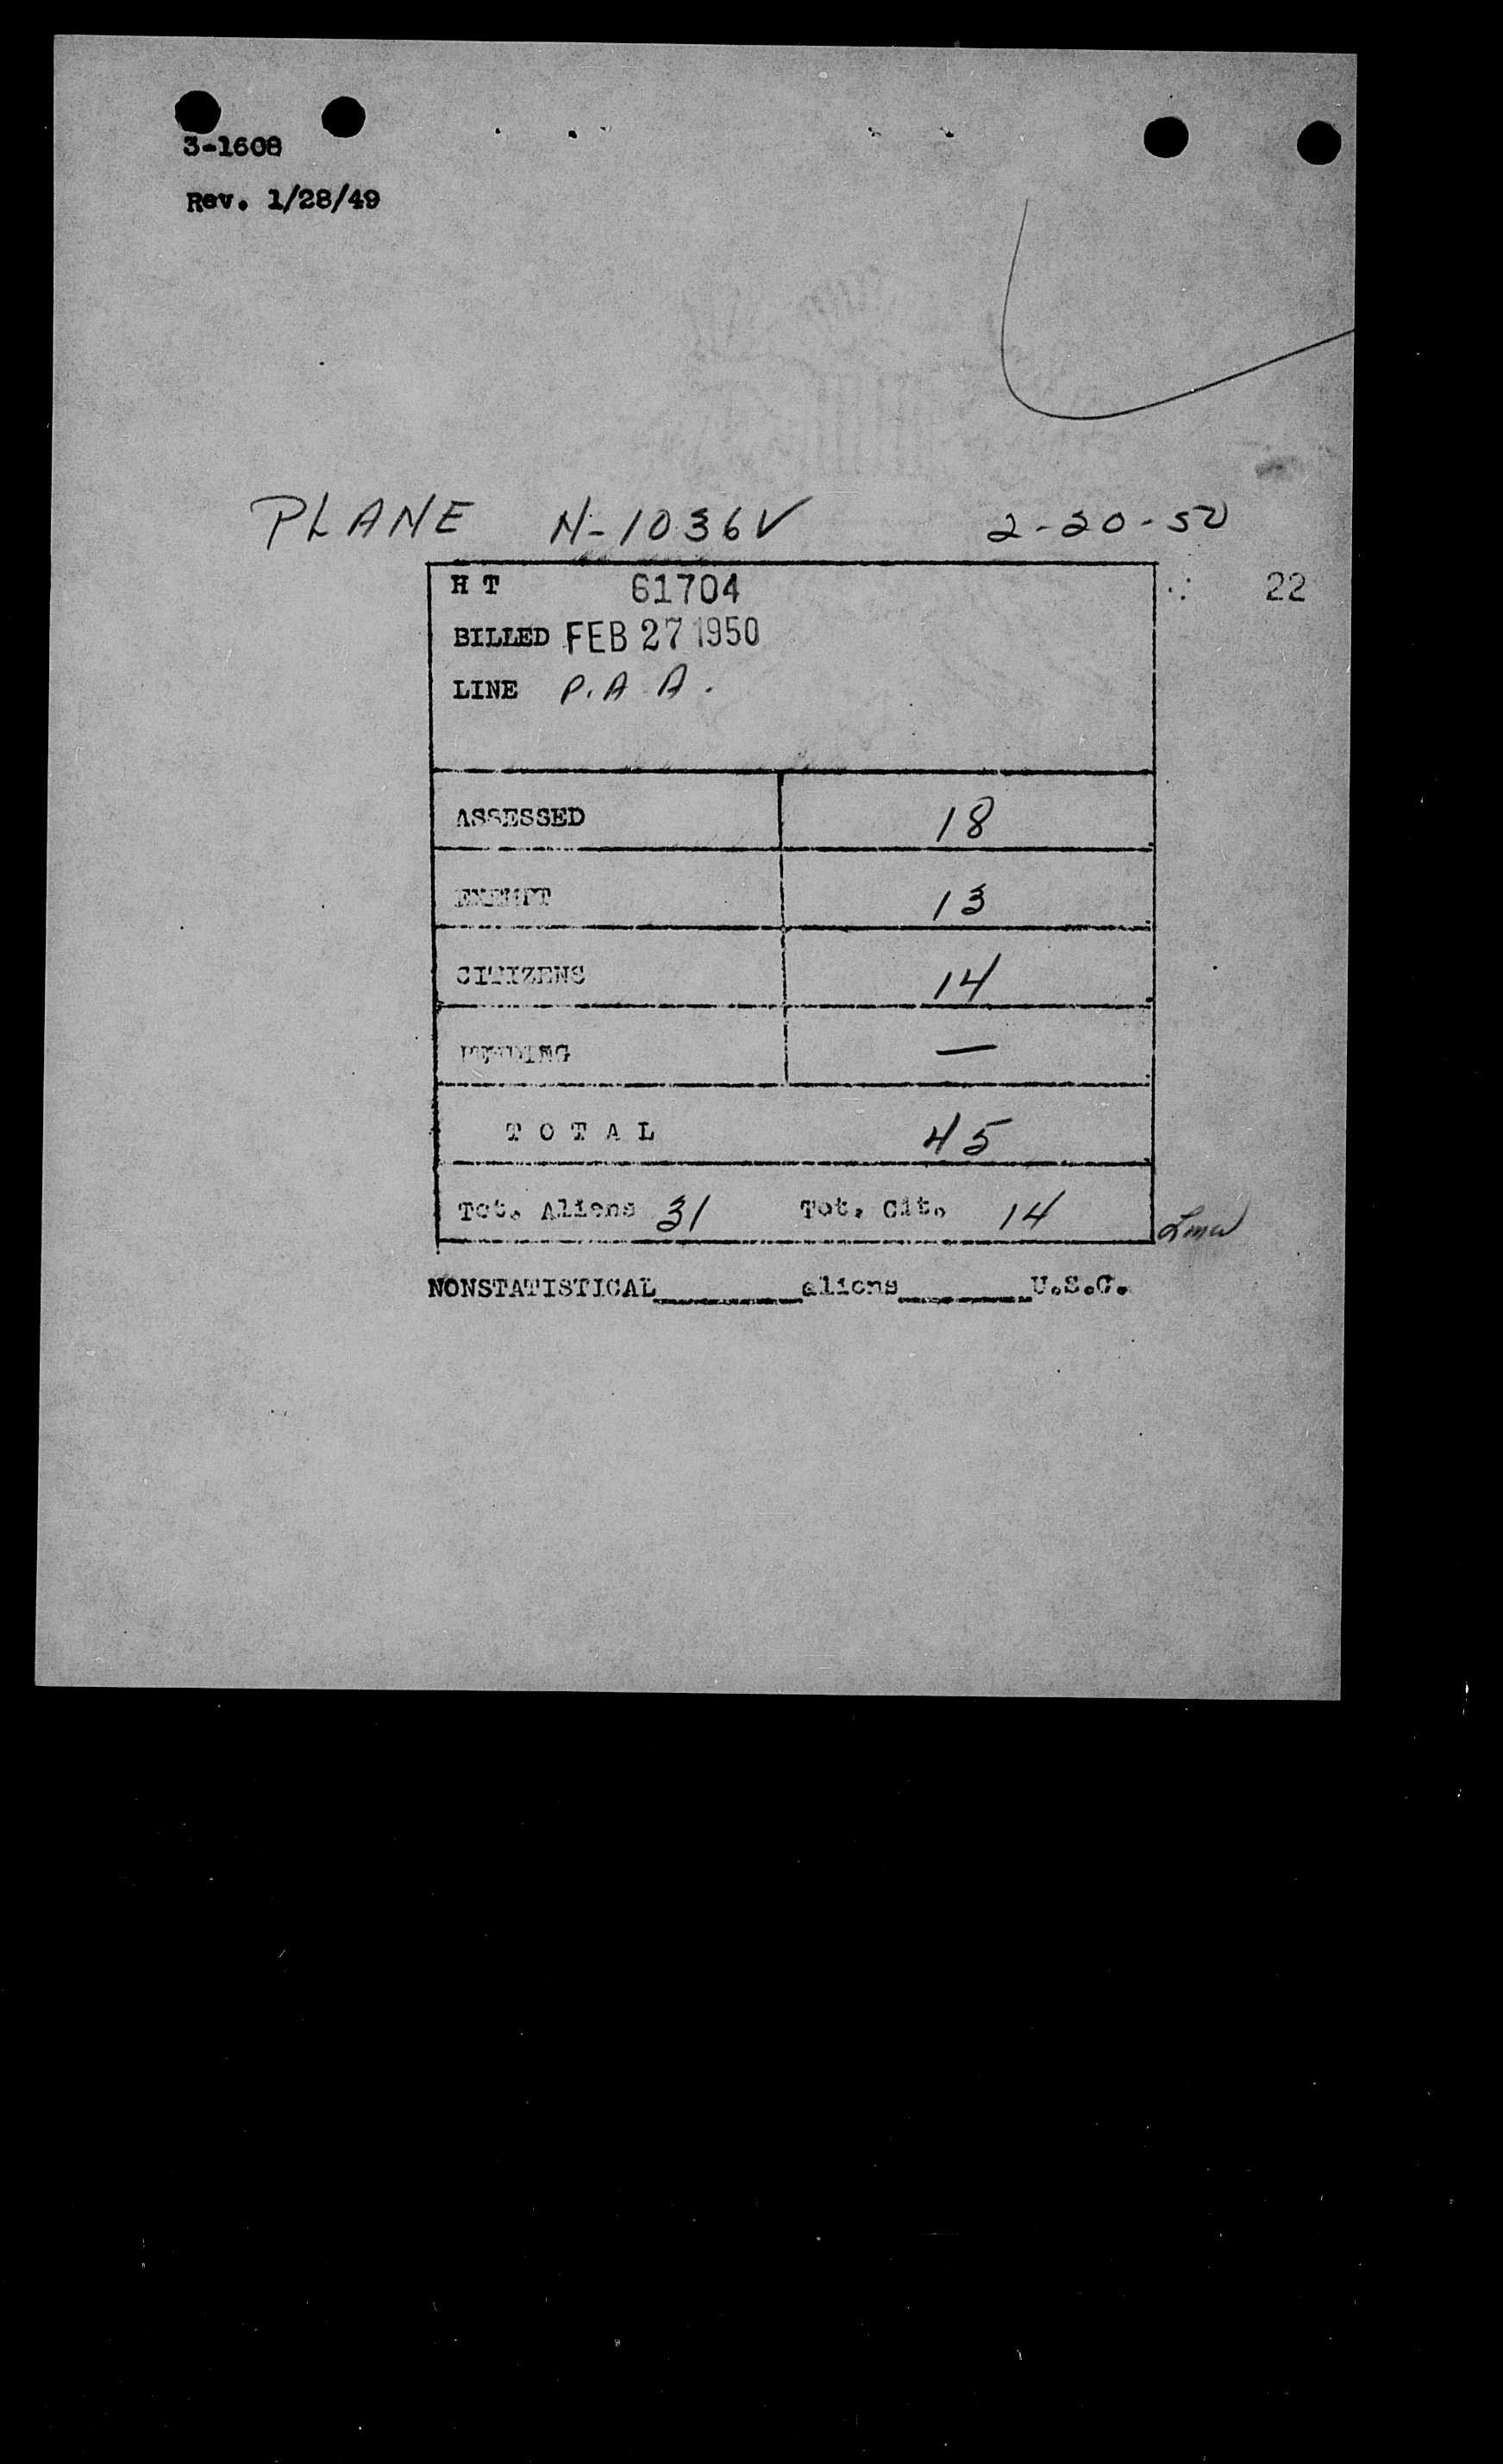 3-1608
Rev. 1/28/49
PLANE N-1036V 2-20-50
H T 61704 22
BILLED FEB 27 1950
LINE P.A A.
ASSESSED 18
EXEMPT 13
CITIZENS 14
PENDING —
T O T A L 45
Tot. Aliens 31 Tot. Cit. 14
Lmw
NONSTATISTICAL________aliens________U.S.C.